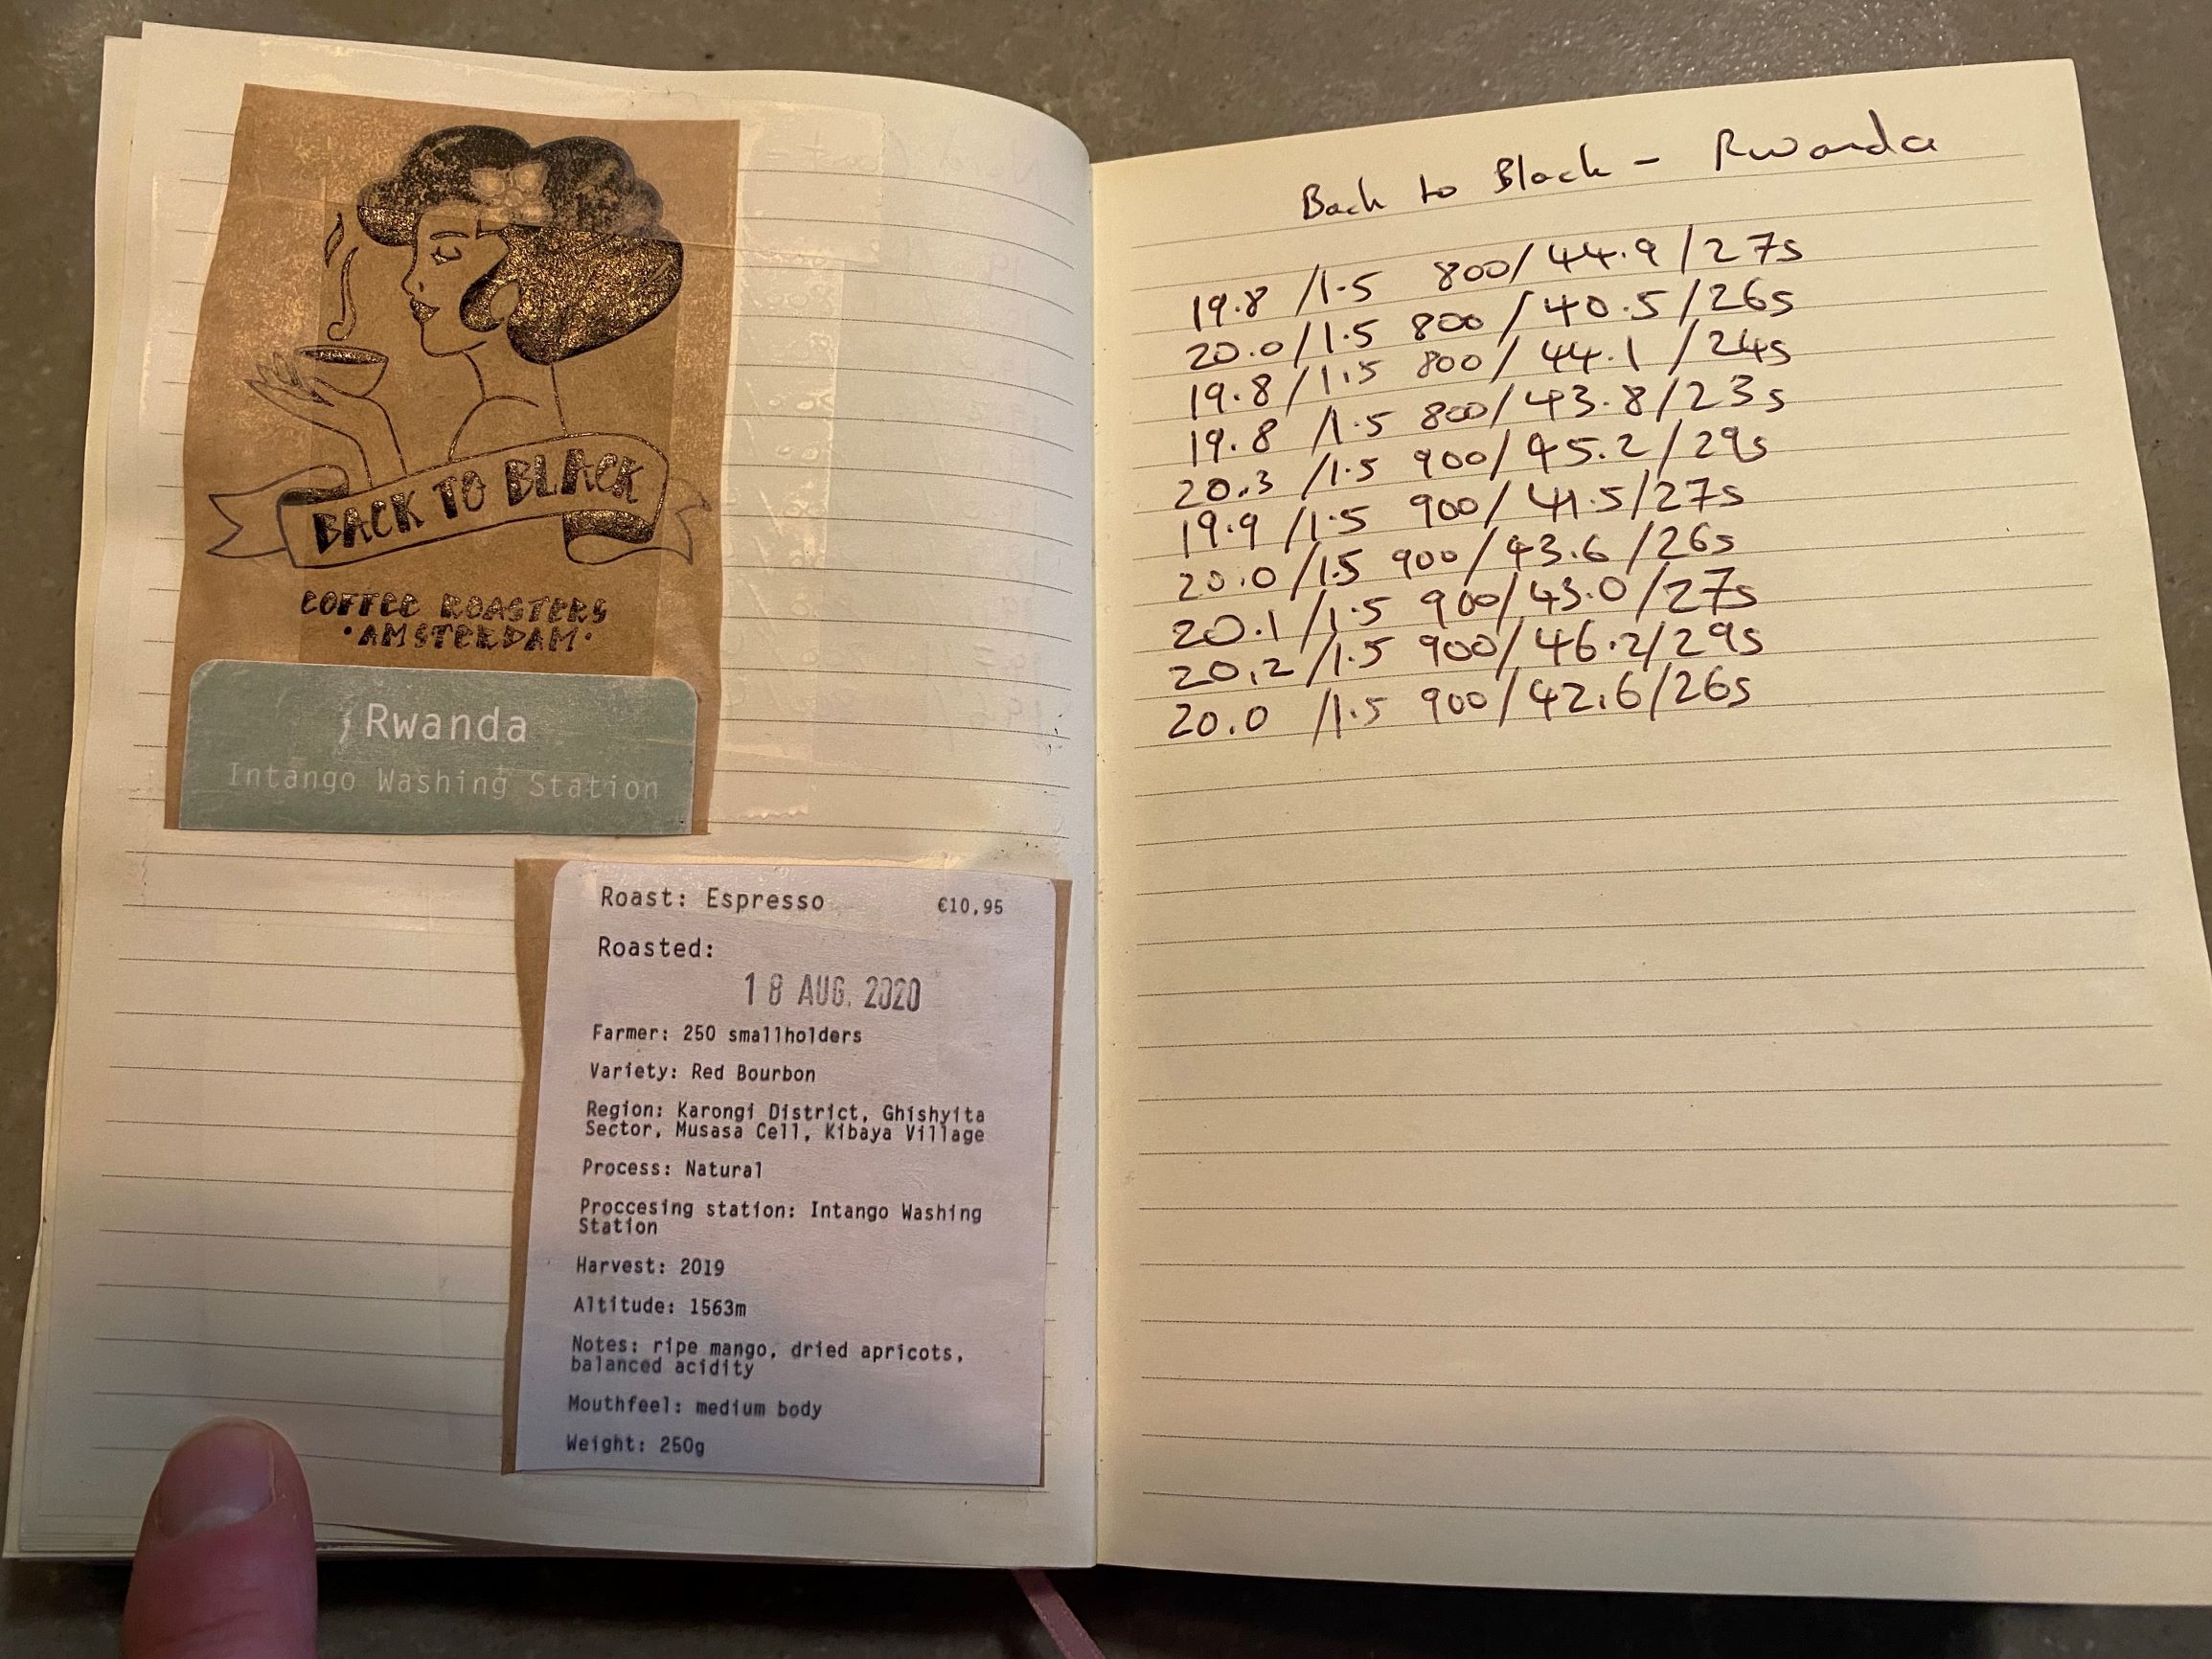 BACK TO BLACK
COFFEE ROASTERS
·AMSTERDAM·
Rwanda
Intango Washing Station
Roast: Espresso €10,95
Roasted:
18 AUG. 2020
Farmer: 250 smallholders
Variety: Red Bourbon
Region: Karongi District, Ghishyita
Sector, Musasa Cell, Kibaya Village
Process: Natural
Proccesing station: Intango Washing
Station
Harvest: 2019
Altitude: 1563m
Notes: ripe mango, dried apricots,
balanced acidity
Mouthfeel: medium body
Weight: 250g
Back to Black - Rwanda
19.8 /1.5 800/44.9/27s
20.0/1.5 800/40.5/26s
19.8/1.5 800/44.1/24s
19.8/1.5 800/43.8/23s
20.3/1.5 900/45.2/29s
19.9/1.5 900/41.5/27s
20.0/1.5 900/43.6/26s
20.1/1.5 900/43.0/27s
20.2/1.5 900/46.2/29s
20.0/1.5 900/42.6/26s